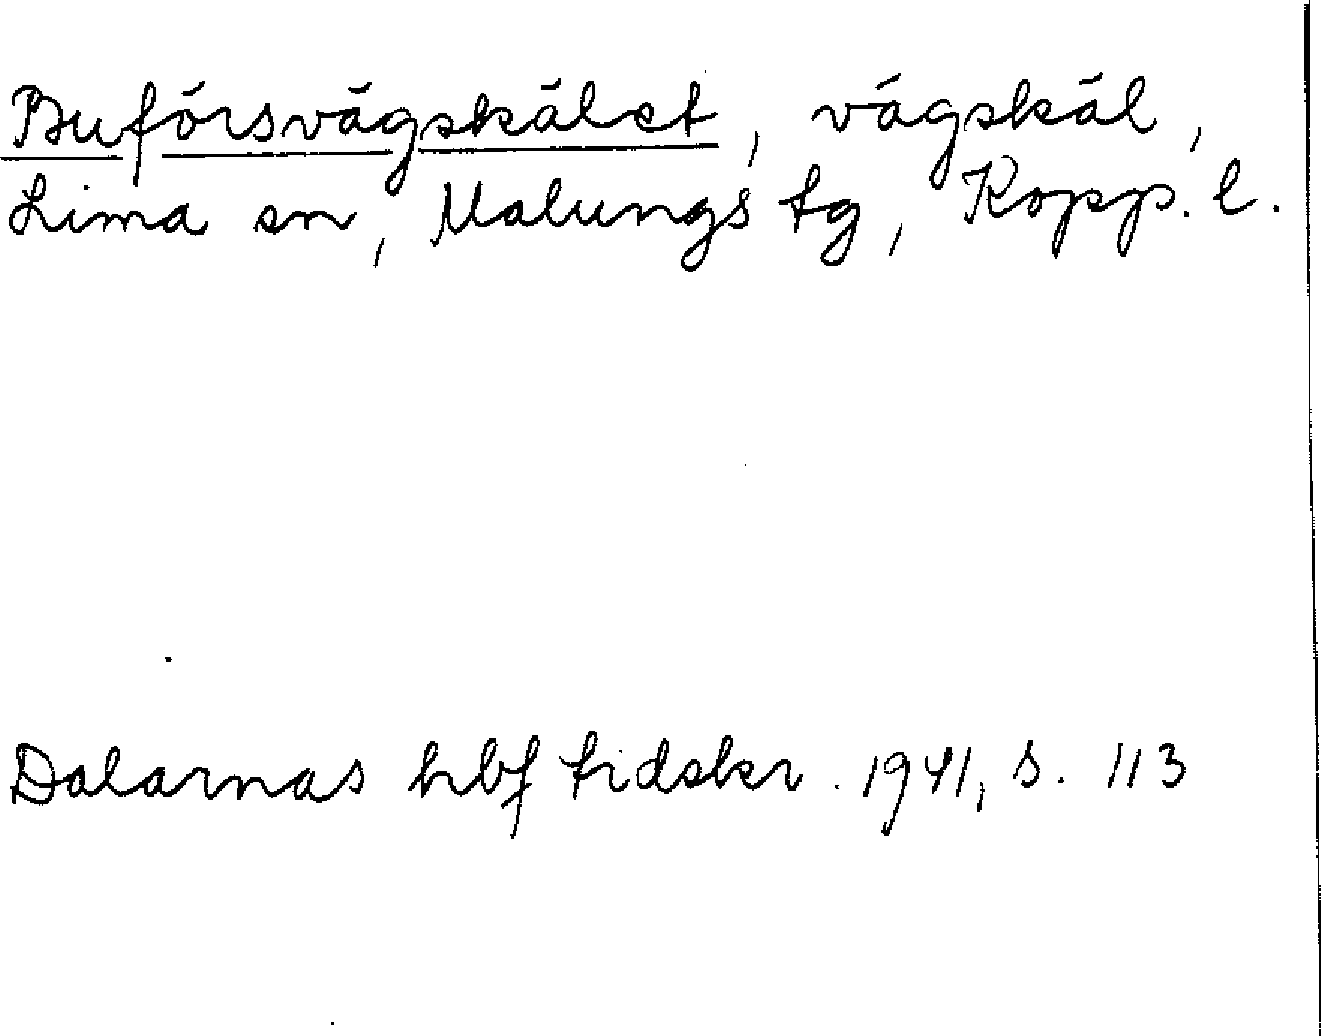 Buförsvägskälet, vägskäl,
Lima sn, Malungs tg, Kopp. l.
Dalarnas hbf tidskr. 1941, s. 113